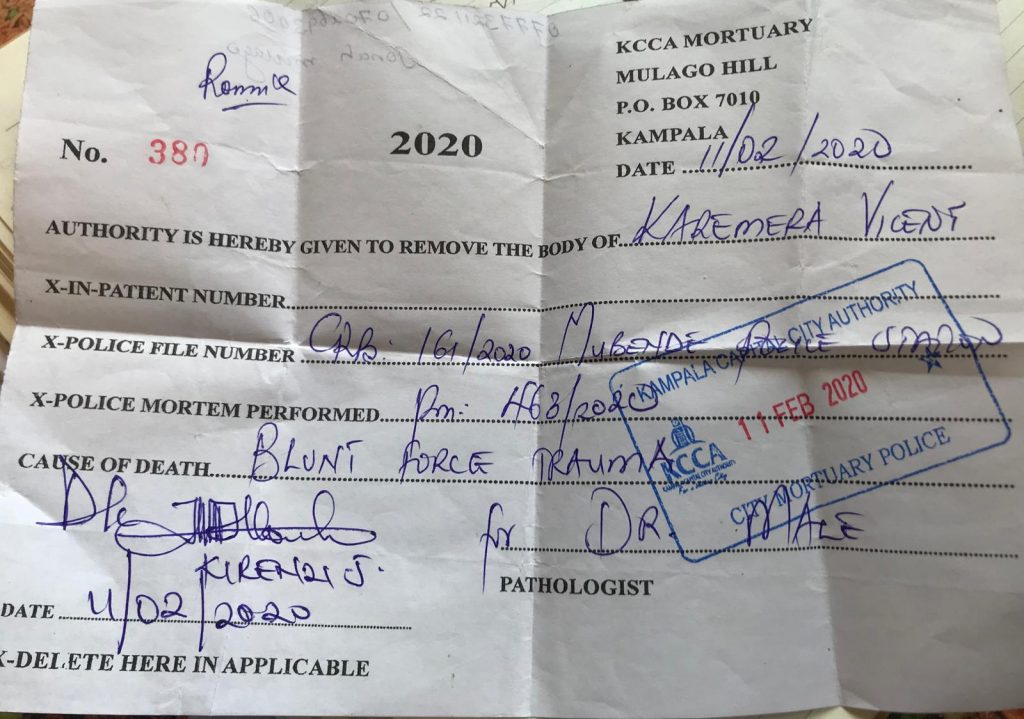 0777321122 / 0702692006
Jonah mulago
Ronnie
KCCA MORTUARY
MULAGO HILL
P.O. BOX 7010
KAMPALA
No. 380
2020
DATE 11/02/2020
AUTHORITY IS HEREBY GIVEN TO REMOVE THE BODY OF KAREMERA VICENT
X-IN-PATIENT NUMBER
X-POLICE FILE NUMBER CRB: 161/2020 MUBENDE POLICE STATION
X-POLICE MORTEM PERFORMED Pm: 463/2020
CAUSE OF DEATH BLUNT FORCE TRAUMA
KAMPALA CAPITAL CITY AUTHORITY
11 FEB 2020
KCCA
KAMPALA CAPITAL CITY AUTHORITY
For a better City
CITY MORTUARY POLICE
for DR. MALE
KIRENZI J.
PATHOLOGIST
DATE 11/02/2020
X-DELETE HERE IN APPLICABLE